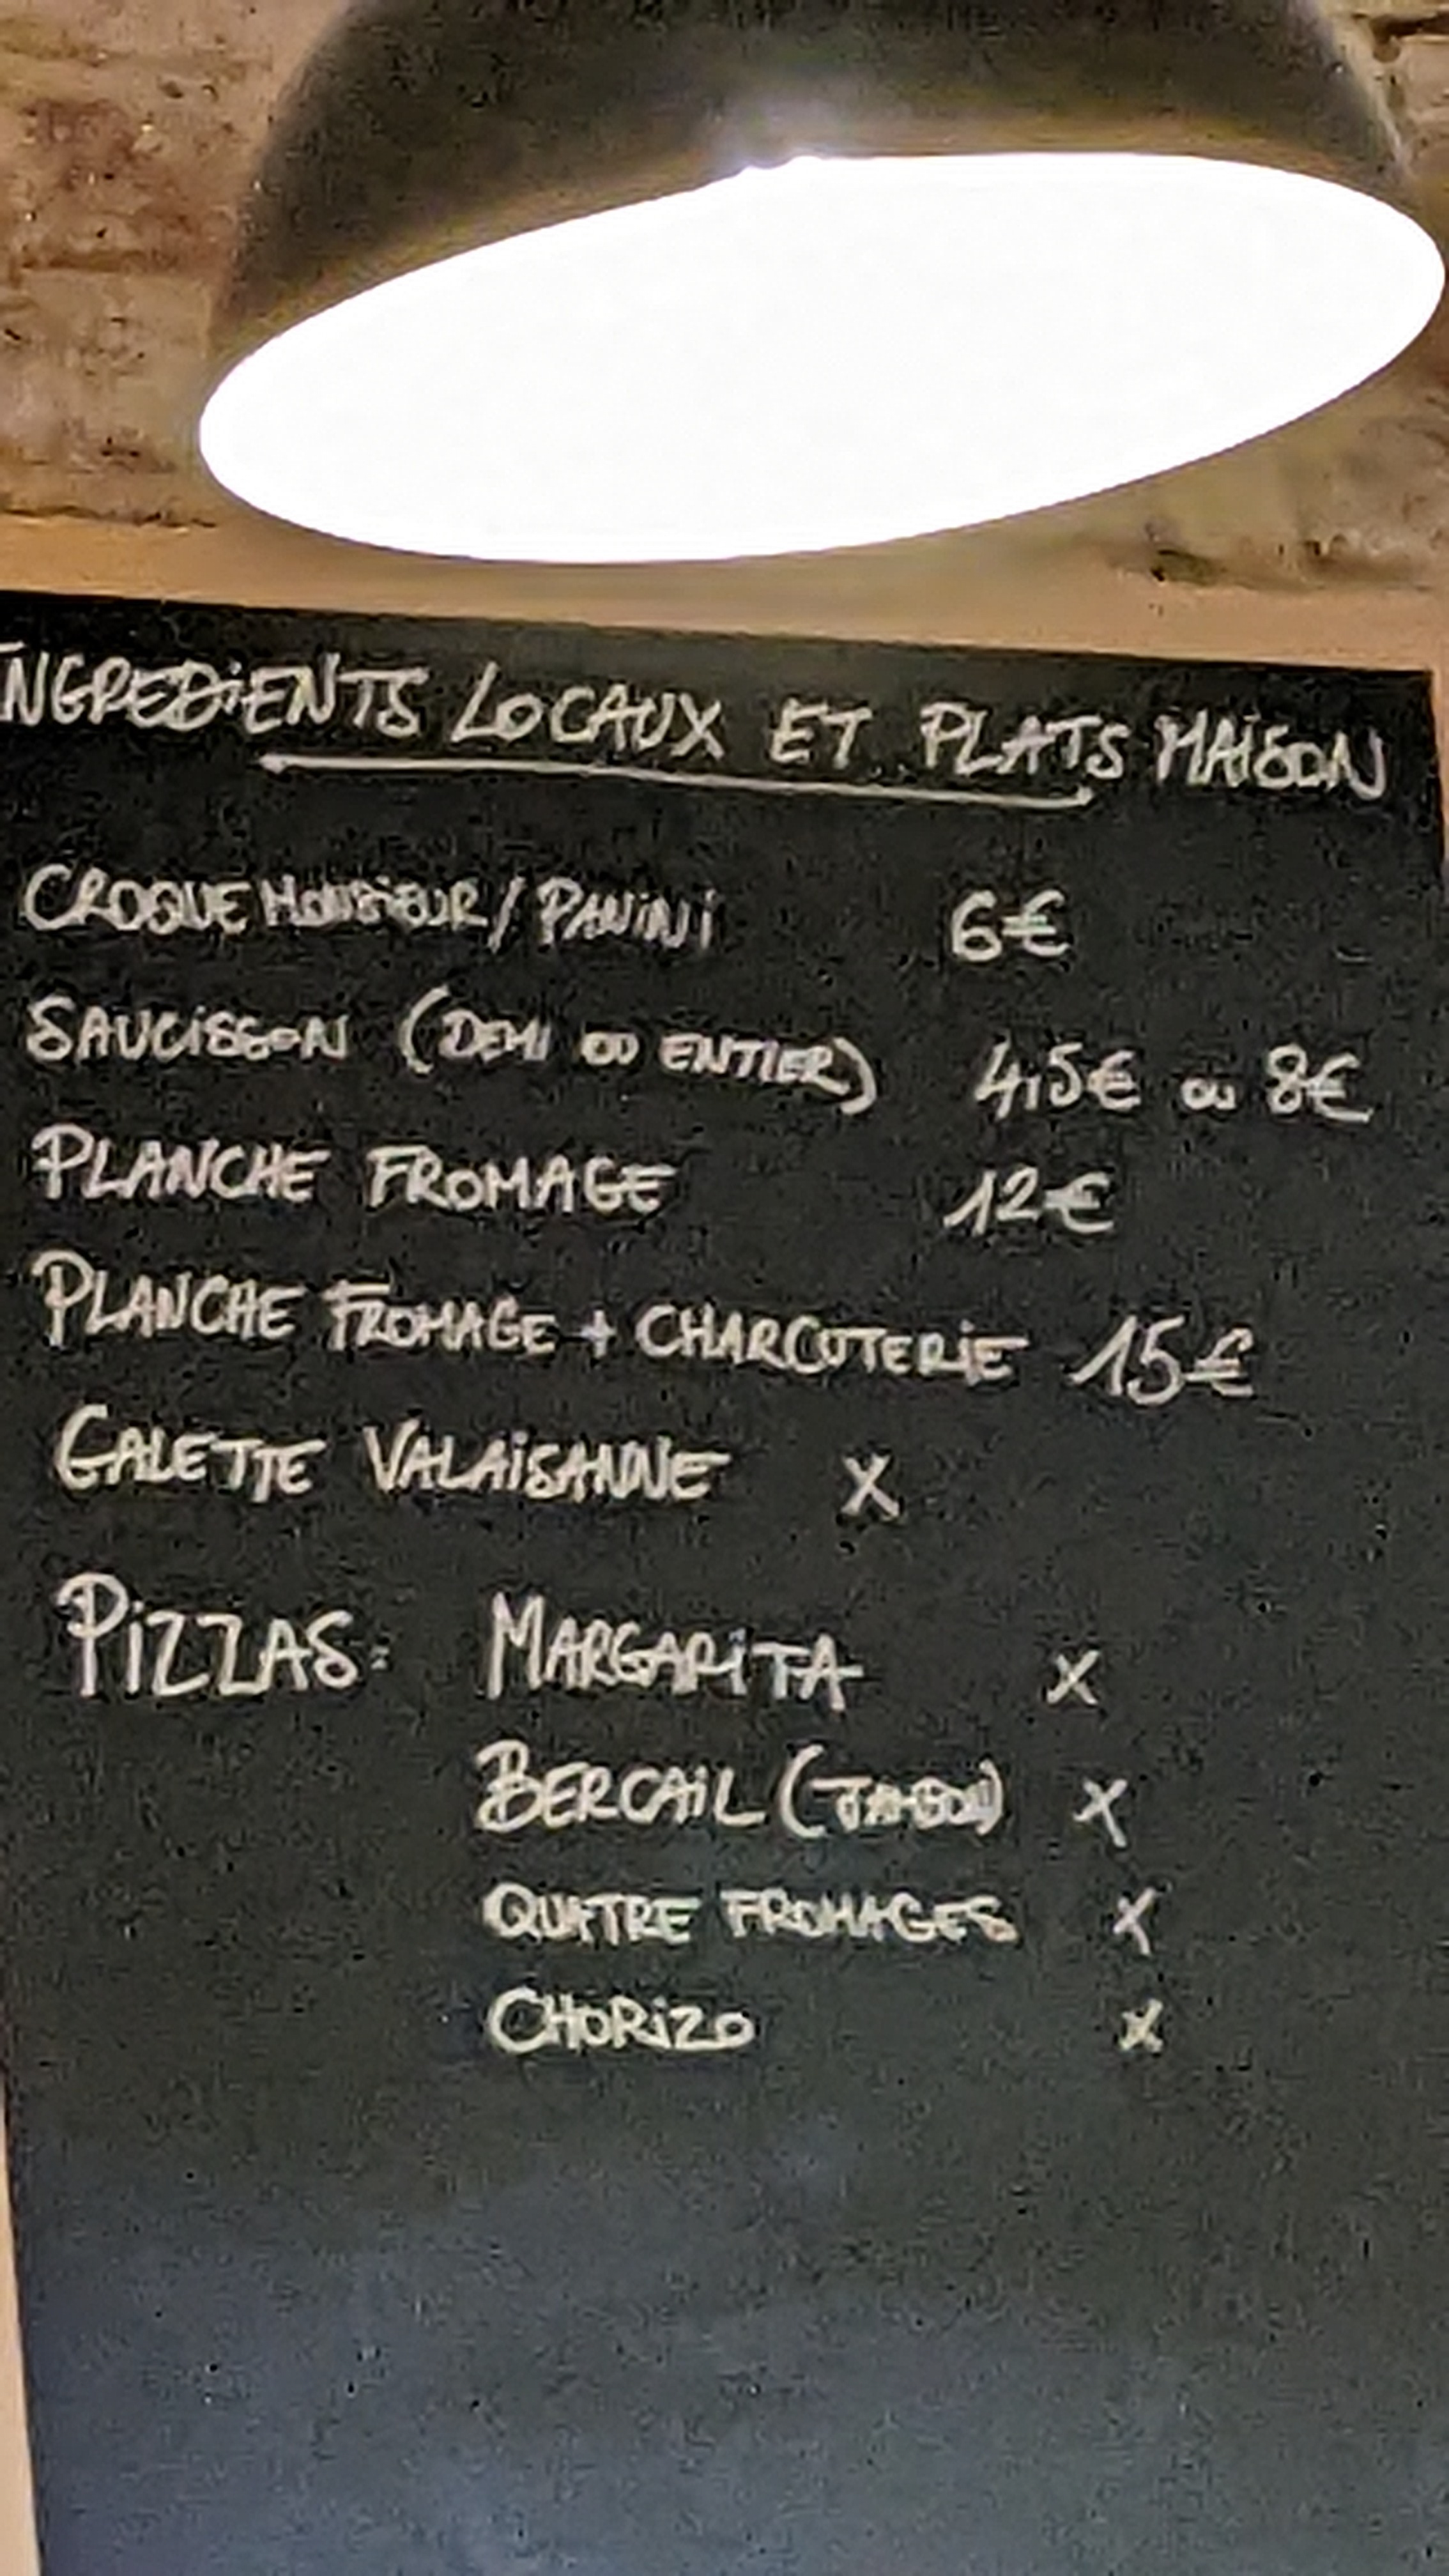 INGREDIENTS LOCAUX ET PLATS MAISON
CROQUE MONSIEUR / PANINI 6€
SAUCISSON (DEMI OU ENTIER) 4,5€ ou 8€
PLANCHE FROMAGE 12€
PLANCHE FROMAGE + CHARCUTERIE 15€
GALETTE VALAISANNE X
PIZZAS: MARGARITA X
BERCAIL (JAMBON) X
QUATRE FROMAGES X
CHORIZO X